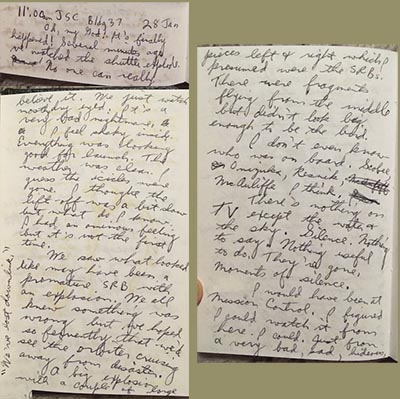 11:00am JSC Bldg 37 28 Jan
Oh, my God! It's finally
happened! Several minutes ago
we watched the shuttle explode.
No one can really
believe it. We just watch
It's a
very bad nightmare, a
I feel shaky inside.
Everything was looking
good for launch. The
weather was clear. I
guess the icicles were
gone. I thought the
lift off was a bit slow
but, what do I know.
I had an ominous feeling
but it's not the first
time.
We saw what looked
like may have been a
premature SRB with
an explosion. We all
knew something was
wrong but we hoped,
so fervently, that we'd
see the orbiter, cruising
away from disaster.
A big explosion
with a couple of large
"We've lost downlink."
pieces left & right which I
presumed were the SRBs.
There were fragments
flying from the middle
but didn't look big
enough to be the bird.
I don't even know
who was on board. Scobee
Onizuka, Resnik,
McAuliffe I think.
There's nothing on
TV except the water &
the sky. Silence. Nothing
to say. Nothing useful
to do. They're gone.
Moments of silence.
I would have been at
Mission Control. I figured
I could watch it from
here. I could. Just from
a very bad, sad, hideous,